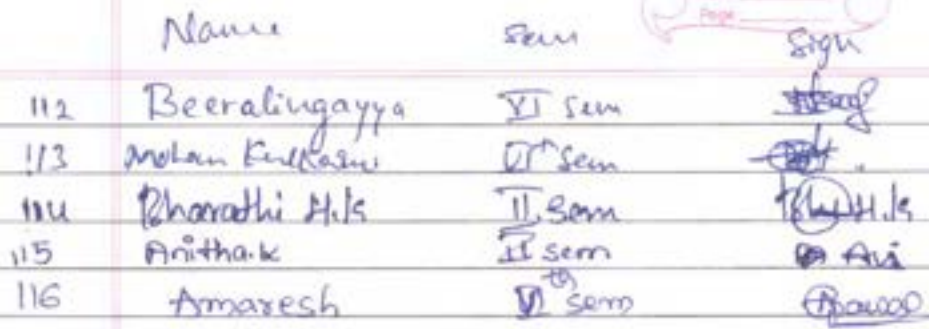 Page
Name Sem Sign
112 Beeralingayya VI Sem
113 Mohan Kulkarni VIth Sem
114 Bharathi H.K II Sem H.K
115 Anitha.K II sem
116 Amaresh VIth sem